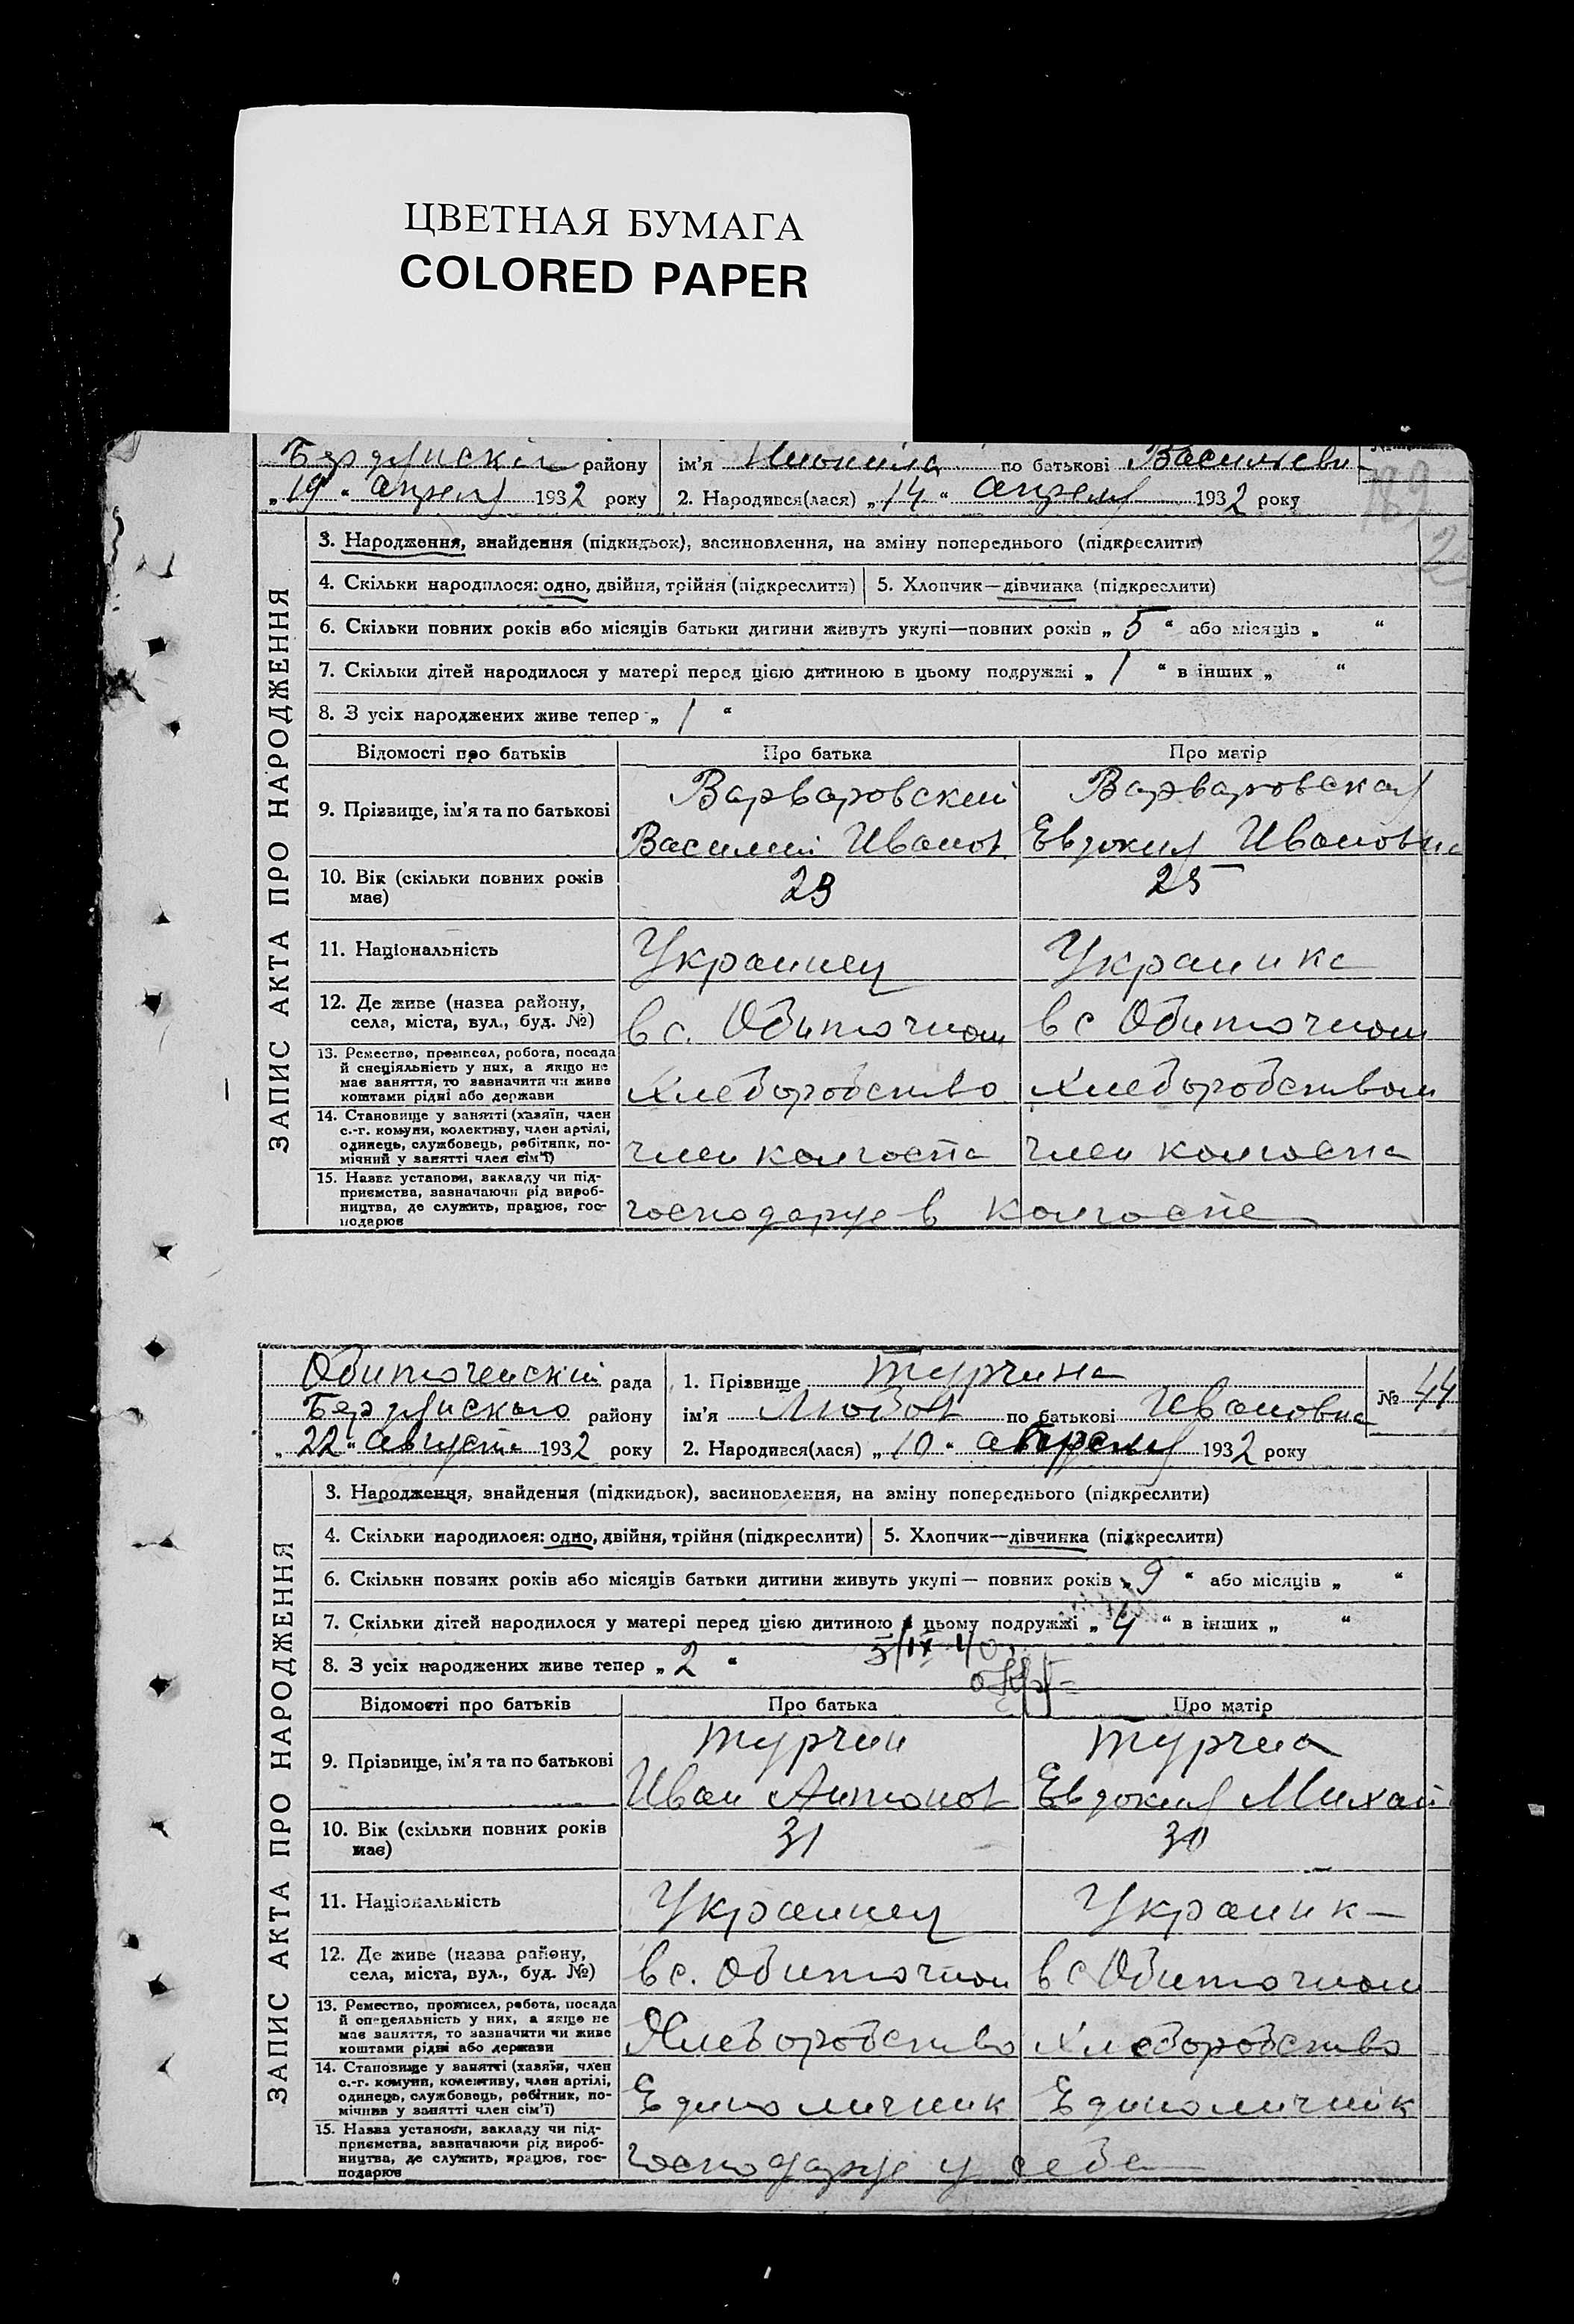 ЦВЕТНАЯ БУМАГА
COLORED PAPER
району ім’я по батькові Василиеви
„19“ апреля 1932 року 2. Народився(лася) „14“ апреля 1932 року
182
ЗАПИС АКТА ПРО НАРОДЖЕННЯ
3. Народження, знайдення (підкидьок), засиновлення, на зміну попереднього (підкреслити)
4. Скільки народилося: одно, двійня, трійня (підкреслити) 5. Хлопчик—дівчинка (підкреслити)
6. Скільки повних років або місяців батьки дитини живуть укупі—повних років „5“ або місяців „ “
7. Скільки дітей народилося у матері перед цією дитиною в цьому подружжі „1“ в інших „ “
8. З усіх народжених живе тепер „1“
Відомості про батьків Про батька Про матір
9. Прізвище, ім’я та по батькові Варваровский Варваровская
Василий Иванов Евдокия Ивановна
10. Вік (скільки повних років має) 29 25
11. Національність Украинец Украинка
12. Де живе (назва району, села, міста, вул., буд. №) в с. Обиточном в с Обиточном
13. Ремество, промисел, робота, посада й спеціяльність у них, а якщо не має заняття, то зазначити чи живе коштами рідні або держави Хлеборобство Хлеборобством
14. Становище у занятті (хазяїн, член с.-г. комуни, колективу, член артілі, одинець, службовець, робітник, помічний у занятті член сім’ї) член колгоспа член колгоспа
15. Назва установи, закладу чи підприємства, зазначаючи рід виробництва, де служить, працює, господарює господарує в колгоспе
Обиточенский рада 1. Прізвище Турчина № 44
району ім’я Любов по батькові Ивановна
„22“ августа 1932 року 2. Народився(лася) „10“ 1932 року
ЗАПИС АКТА ПРО НАРОДЖЕННЯ
3. Народження, знайдення (підкидьок), засиновлення, на зміну попереднього (підкреслити)
4. Скільки народилося: одно, двійня, трійня (підкреслити) 5. Хлопчик—дівчинка (підкреслити)
6. Скільки повних років або місяців батьки дитини живуть укупі — повних років „9“ або місяців „ “
7. Скільки дітей народилося у матері перед цією дитиною в цьому подружжі „4“ в інших „ “
8. З усіх народжених живе тепер „2“
Відомості про батьків Про батька Про матір
9. Прізвище, ім’я та по батькові Турчин Турчина
Иван Антонов Евдокия Михай
10. Вік (скільки повних років має) 31 30
11. Національність Украинец Украинк
12. Де живе (назва району, села, міста, вул., буд. №) в с. Обиточном в с Обиточном
13. Ремество, промисел, робота, посада й спеціяльність у них, а якщо не має заняття, то зазначити чи живе коштами рідні або держави Хлеборобство Хлеборобство
14. Становище у занятті (хазяїн, член с.-г. комуни, колективу, член артілі, одинець, службовець, робітник, помічний у занятті член сім’ї) Единоличник Единоличник
15. Назва установи, закладу чи підприємства, зазначаючи рід виробництва, де служить, працює, господарює господарує у себе